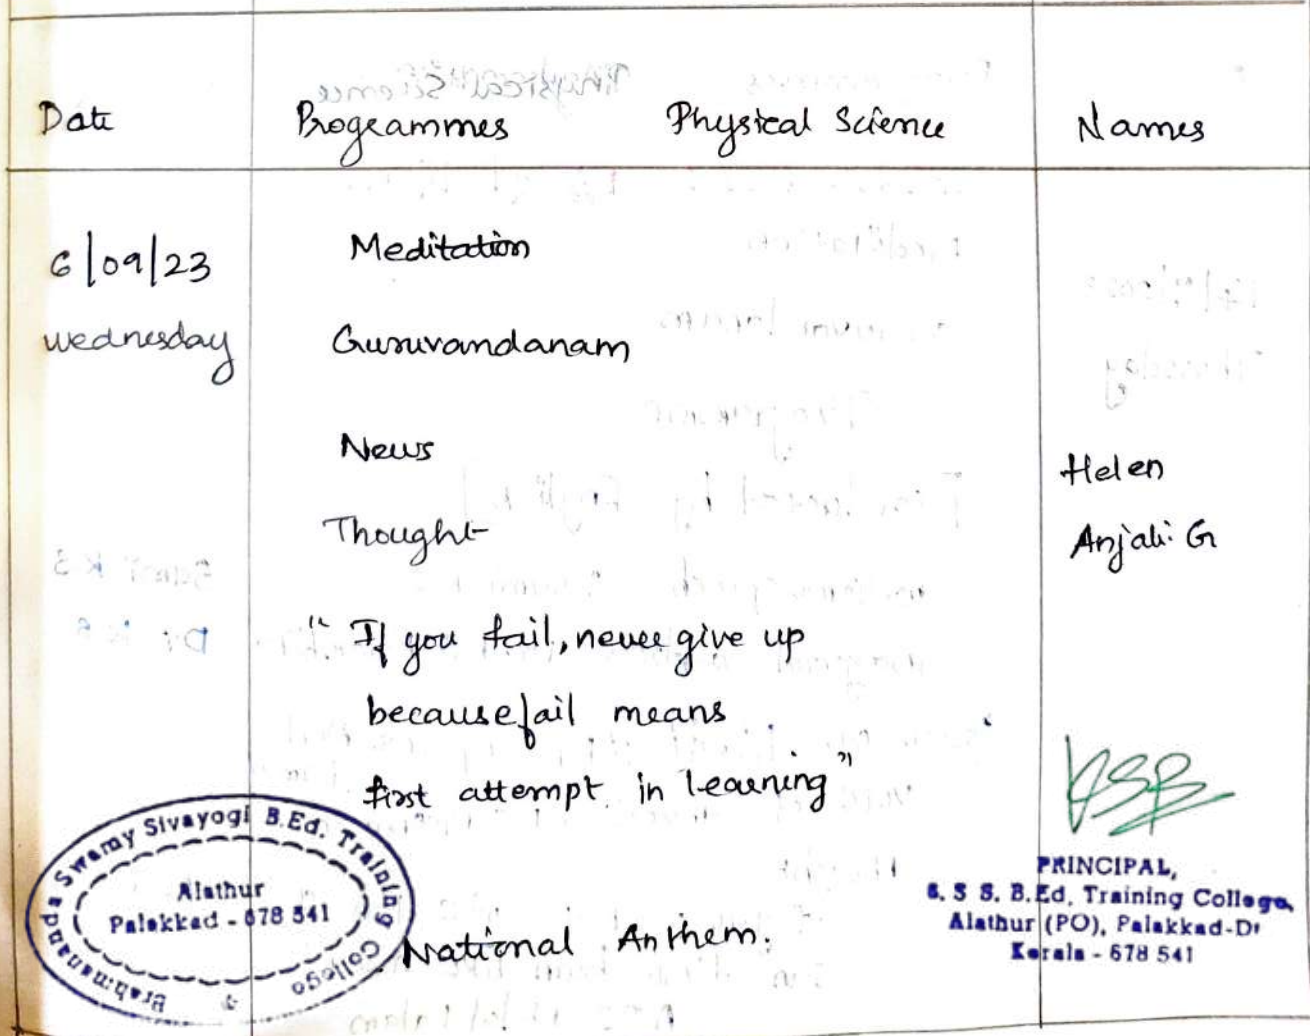 Date Programmes Physical Science Names
6/09/23 Meditation
wednesday Guruvandanam
News Helen
Thought Anjali G
"If you fail, never give up
because fail means
first attempt in learning"
National Anthem.
Brahmananda Swamy Sivayogi B.Ed. Training College
Alathur
Palakkad - 678 541
PRINCIPAL,
B. S S. B.Ed. Training College,
Alathur (PO), Palakkad-Dt
Kerala - 678 541